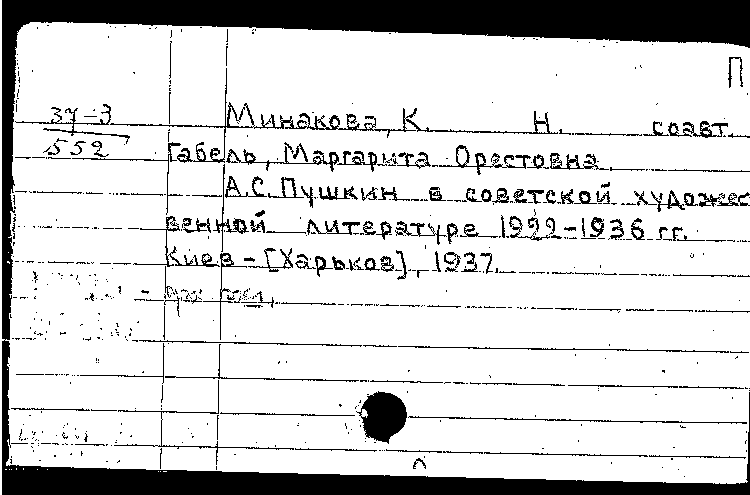 П
37-3
552
Минакова, К. Н. соавт.
Габель, Маргарита Орестовна.
А.С. Пушкин в советской художест
венной литературе 1922-1936 гг.
Киев - [Харьков], 1937.